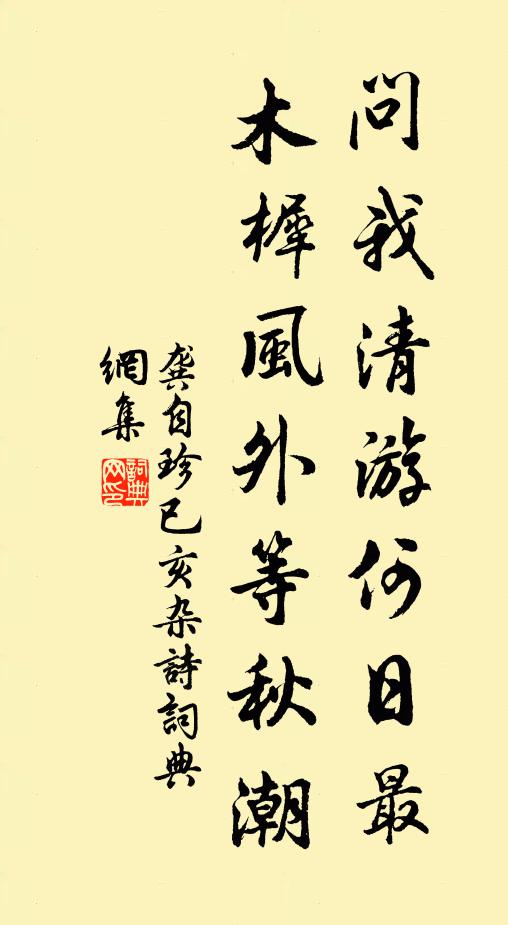 問我清游何日最
木樨風外等秋潮
龔自珍已亥杂詩詞典
網集
詞典
网印